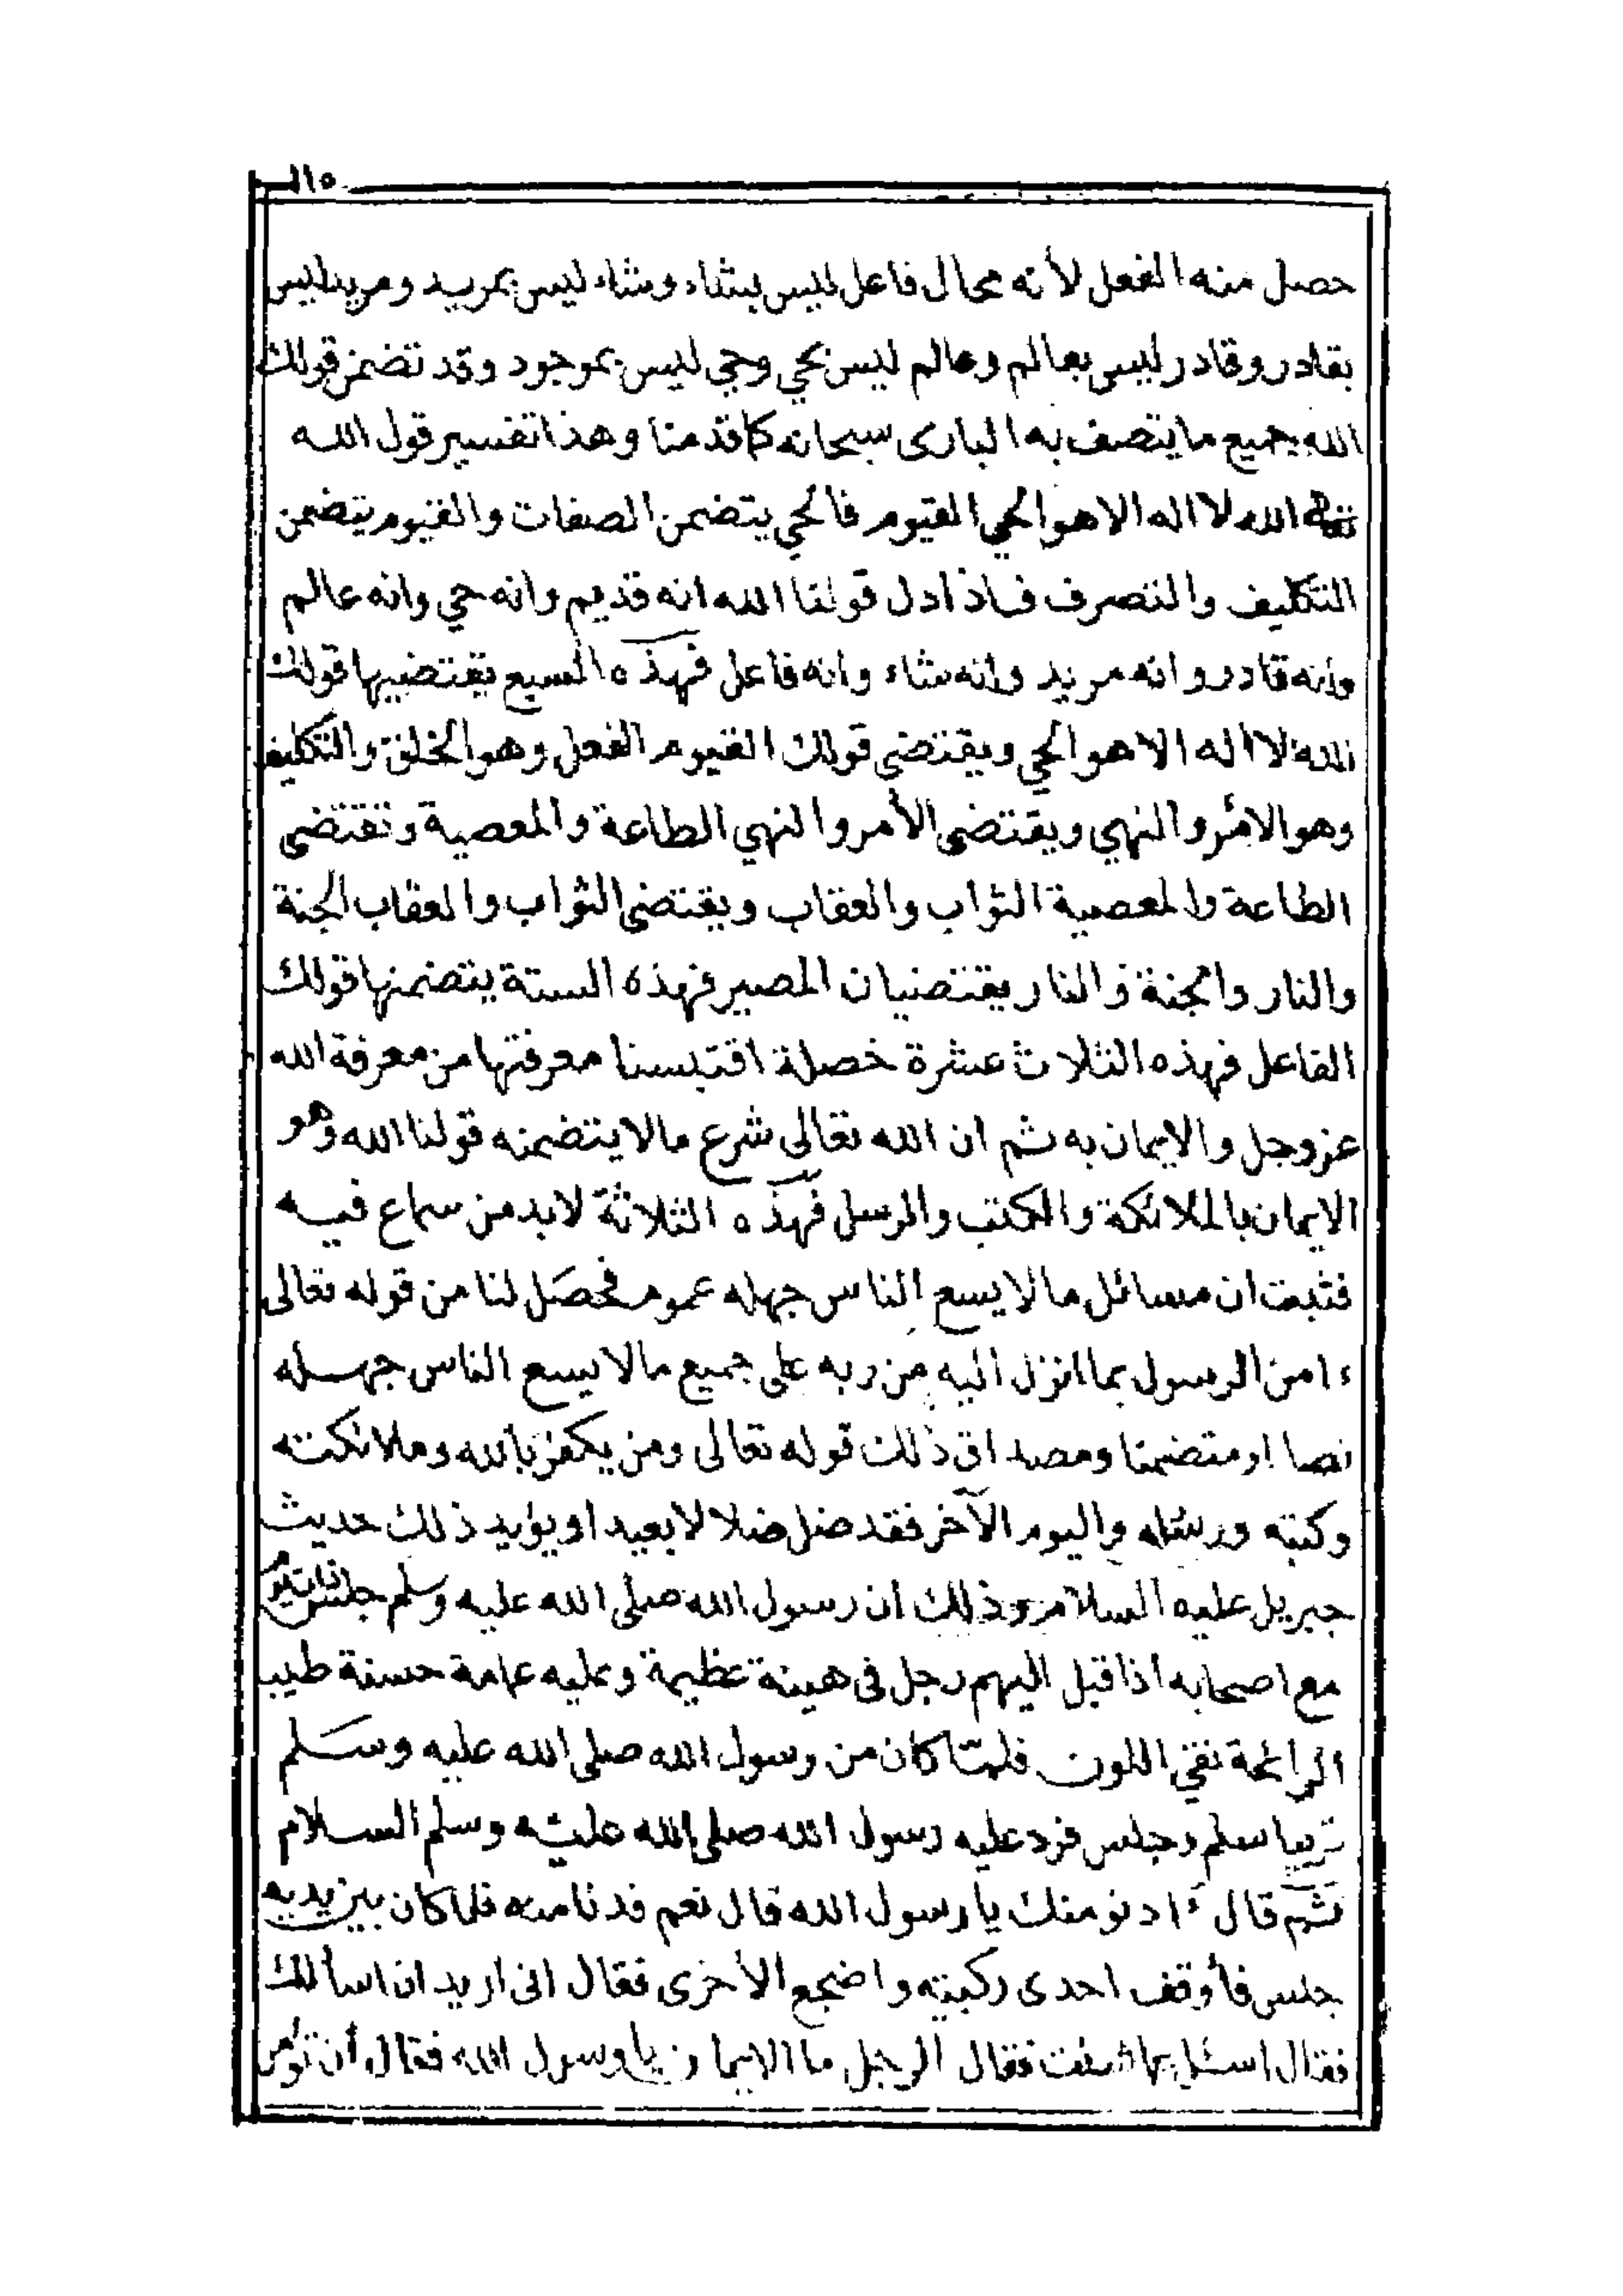 ١١٥
حصل منه الفعل لأنه محال فاعل ليس بشاء وشاء ليس بمريد ومريد ليس
بقادر وقادر ليس بعالم وعالم ليس بحي وحي ليس بموجود وقد تضمن قولك
الله جميع ما يتصف به البارى سبحانه كما قدمنا وهذا تفسير قول الله
تعالى الله لا اله الا هو الحي القيوم فالحي يتضمن الصفات والقيوم يتضمن
التكليف والتصرف فاذا دل قولنا الله انه قديم وانه حي وانه عالم
وانه قادر وانه مريد وانه شاء وانه فاعل فهذه السبع يقتضيها قولك
الله لا اله الا هو الحي ويقتضى قولك القيوم الفعل وهو الخلق والتكليف
وهو الامر والنهي ويقتضى الأمر والنهي الطاعة والمعصية وتقتضى
الطاعة والمعصية الثواب والعقاب ويقتضى الثواب والعقاب الجنة
والنار والجنة والنار يقتضيان المصير فهذه الستة يتضمنها قولك
الفاعل فهذه الثلاث عشرة خصلة اقتبسنا معرفتها من معرفة الله
عز وجل والايمان به ثم ان الله تعالى شرع ما لا يتضمنه قولنا الله وهو
الايمان بالملائكة والكتب والرسل فهذه الثلاثة لابد من سماع فيه
فثبت ان مسائل ما لا يسع الناس جهله عموم فحصَل لنا من قوله تعالى
ءامن الرسول بما انزل اليه من ربه على جميع ما لا يسع الناس جهله
نصا او متضمنا ومصداق ذلك قوله تعالى ومن يكفر بالله وملائكته
وكتبه ورسله واليوم الآخر فقد ضل ضلالا بعيدا ويؤيد ذلك حديث
جبريل عليه السلام وذلك ان رسول الله صلى الله عليه وسلم جلس ذات يوم
مع اصحابه اذ اقبل اليهم رجل فى هيئة عظيمة وعليه عمامة حسنة طيب
الرائحة نقي اللون فلمّا كان من رسول الله صلى الله عليه وسَلم
قريبا سلم وجلس فرد عليه رسول الله صلى الله عليه وسلم السلام
ثم قال ءادنو منك يا رسول الله قال نعم فدنا منه فلما كان بين يديه
جلس فأوقف احدى ركبتيه واضجع الأخرى فقال انى اريد ان اسألك
فقال اسئل بما شئت فقال الرجل ما الايمان يا رسول الله فقال أن تؤمن